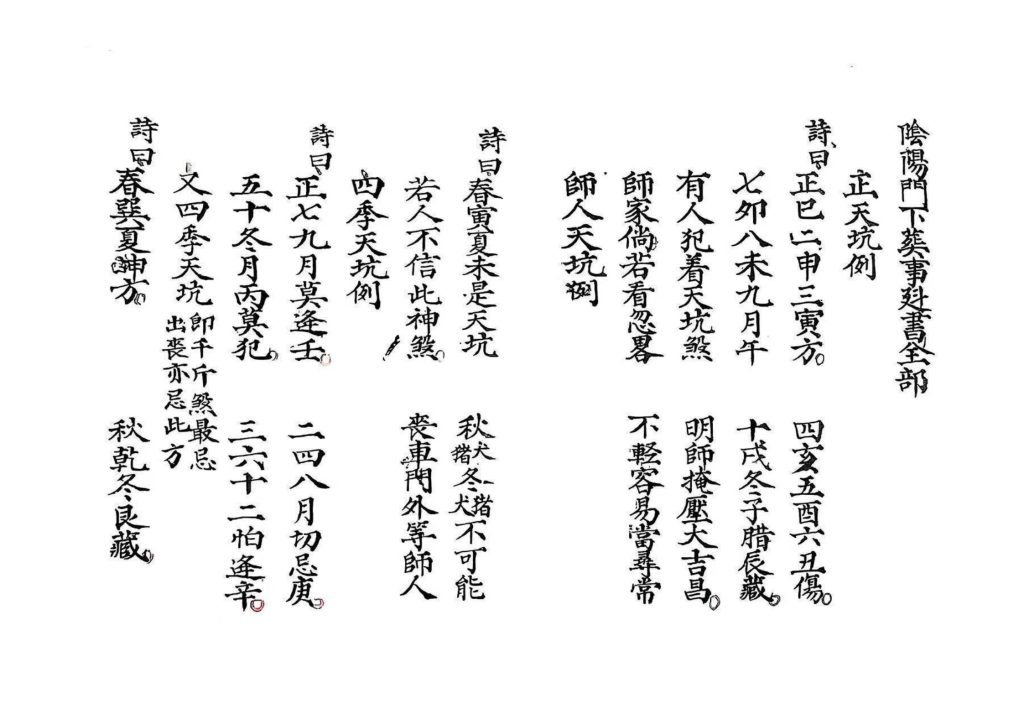 陰陽門下葬事尅書全部
正天坑例
詩曰正巳二申三寅方。 四亥五酉六丑傷。
七夘八未九月午 十戌冬子腊辰藏。
有人犯着天坑煞 明師掩壓大吉昌。
師家倘若看忽畧 不輕容易當尋常
師人天坑例
詩曰春寅夏未是天坑 秋犬猪冬猪犬不可能
若人不信此神煞。 喪車門外等師人
四季天坑例
詩曰正七九月莫逢壬。 二四八月切忌庚。
五十冬月丙莫犯。 三六十二怕逢辛。
又四季天坑 即千斤煞最忌出喪亦忌此方
詩曰春巽夏坤方。 秋乾冬艮藏。